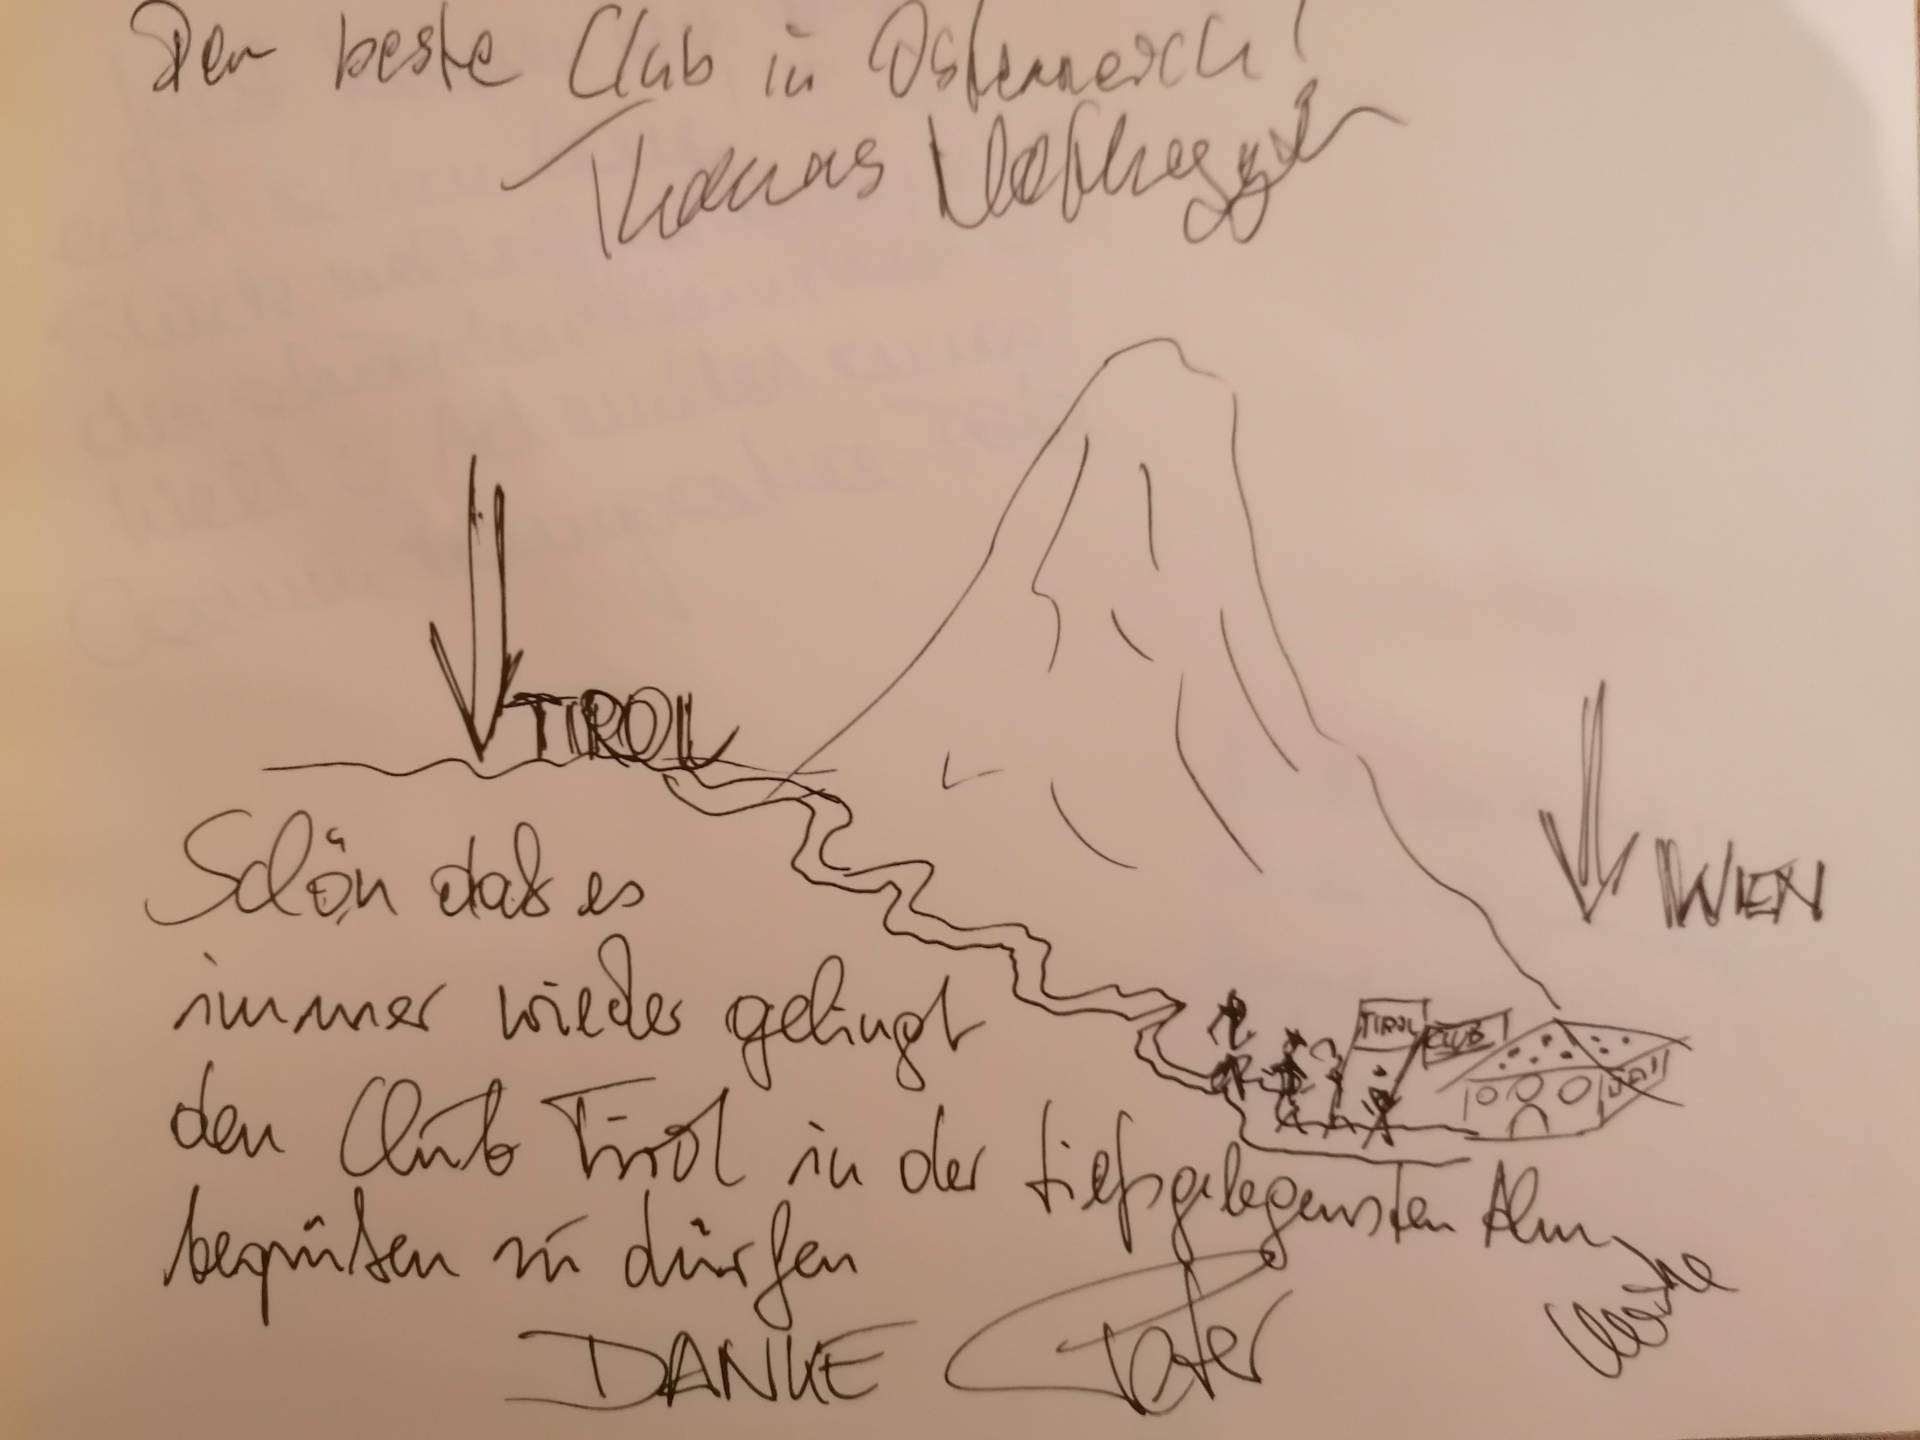 Der beste Club in Österreich!
Thomas
TIROL
WIEN
TIROL CLUB
Schön das es
immer wieder gelingt
den Club Tirol in der tiefsgelegensten Alm
begrüßen zu dürfen
DANKE Peter